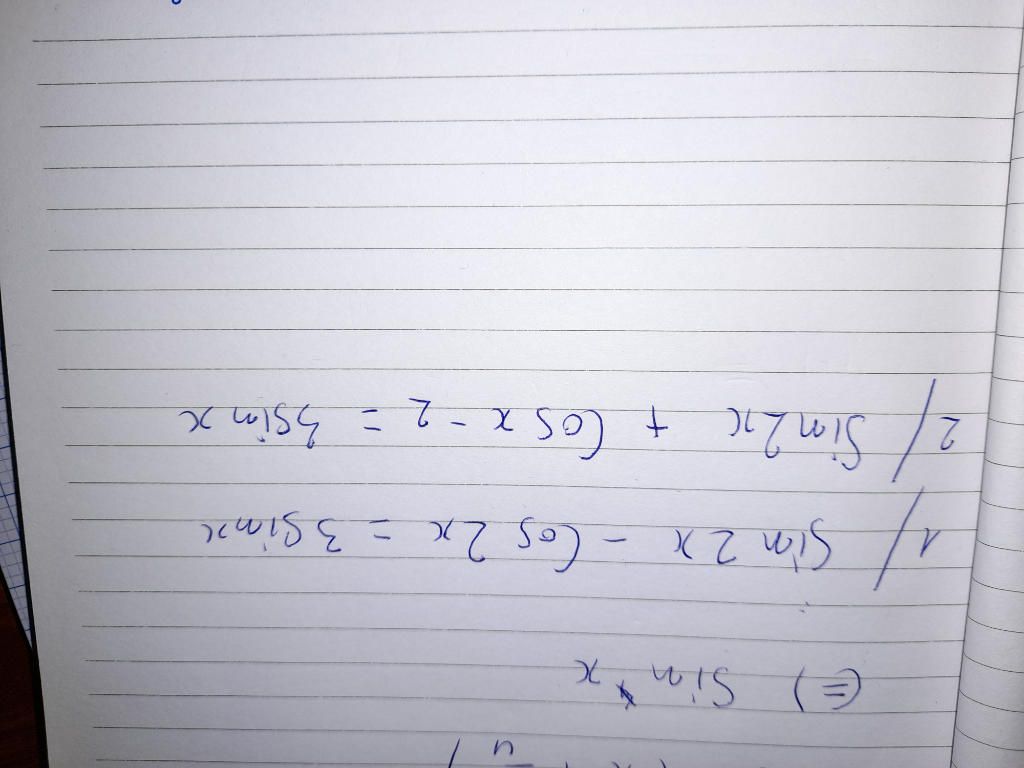 (=) Sin x
1/ Sin 2x - Cos 2x = 3 Sin x
2/ Sin 2x + Cos x - 2 = 3 sin x